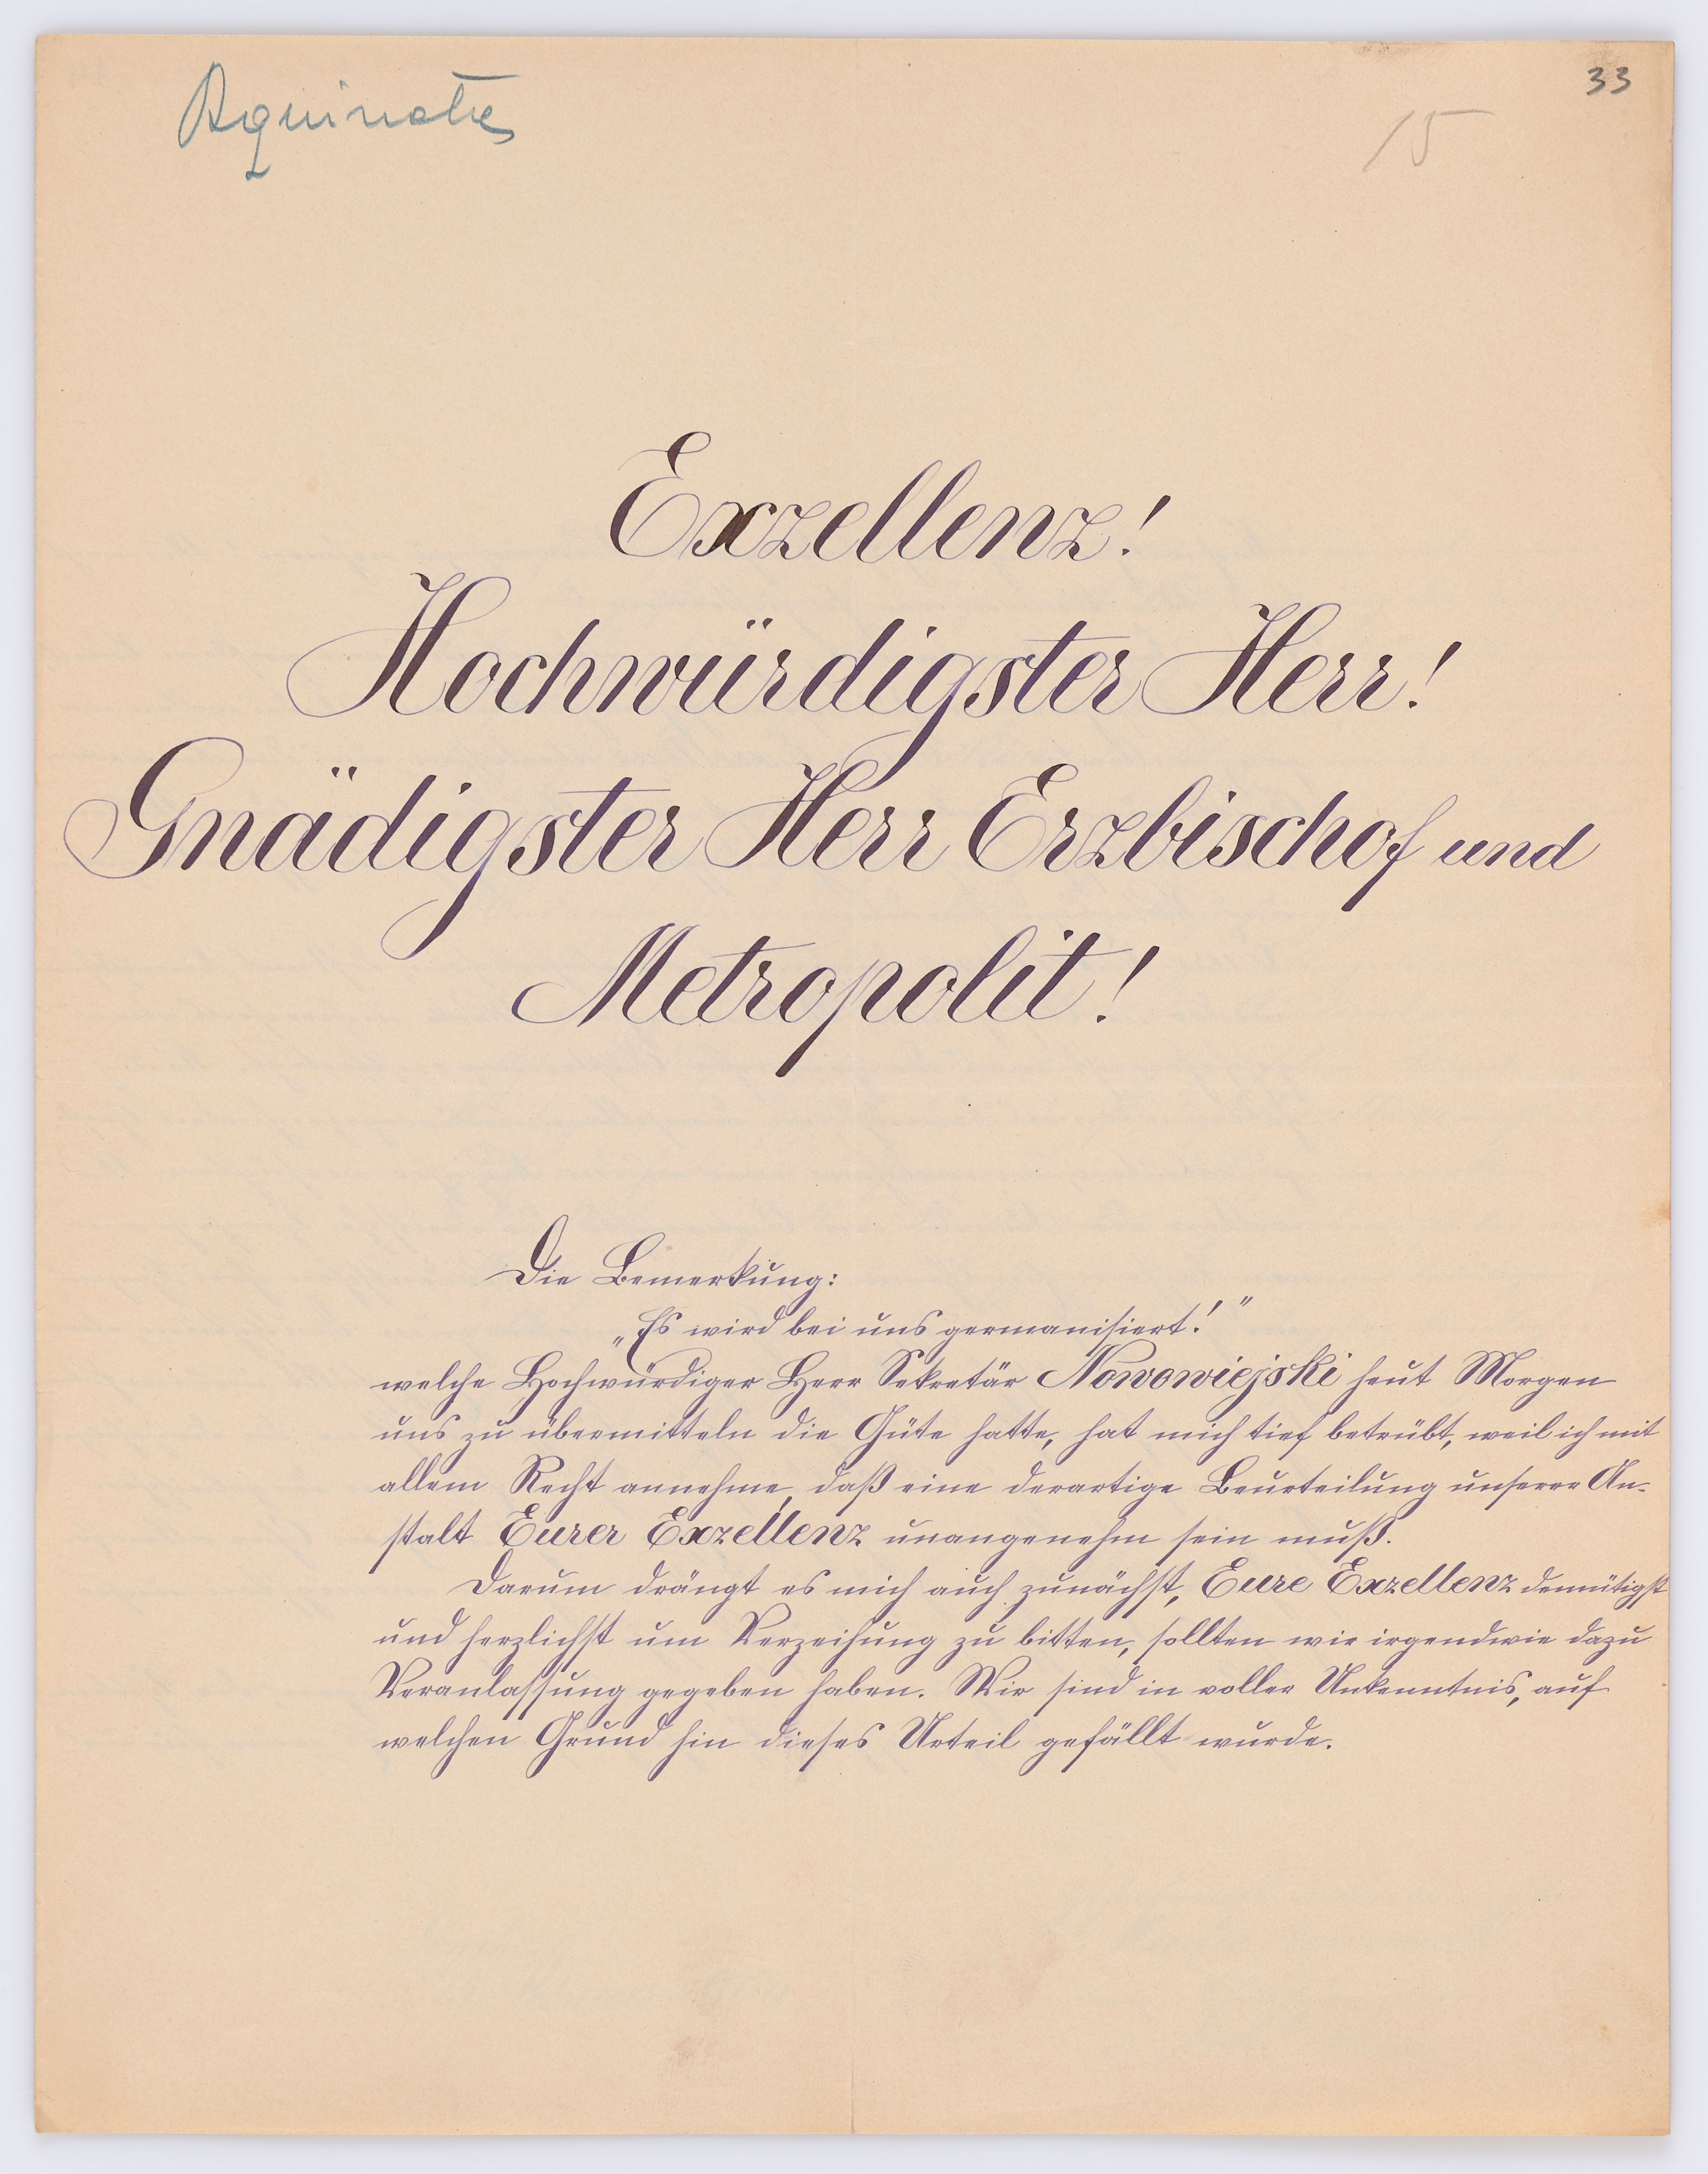 33
15
Exzellenz!
Hochwürdigster Herr!
Gnädigster Herr Erzbischof und
Metropolit!
Die Bemerkung:
„Es wird bei uns germanisiert!"
welche Hochwürdiger Herr Sekretär Nowowiejski heut Morgen
uns zu übermitteln die Güte hatte, hat mich tief betrübt, weil ich mit
allem Recht annehme, daß eine derartige Beurteilung unserer An-
stalt Eurer Exzellenz unangenehm sein muß.
Darum drängt es mich auch zunächst, Eure Exzellenz demütigst
und herzlichst um Verzeihung zu bitten, sollten wir irgendwie dazu
Veranlassung gegeben haben. Wir sind in voller Unkenntnis, auf
welchen Grund hin dieses Urteil gefällt wurde.